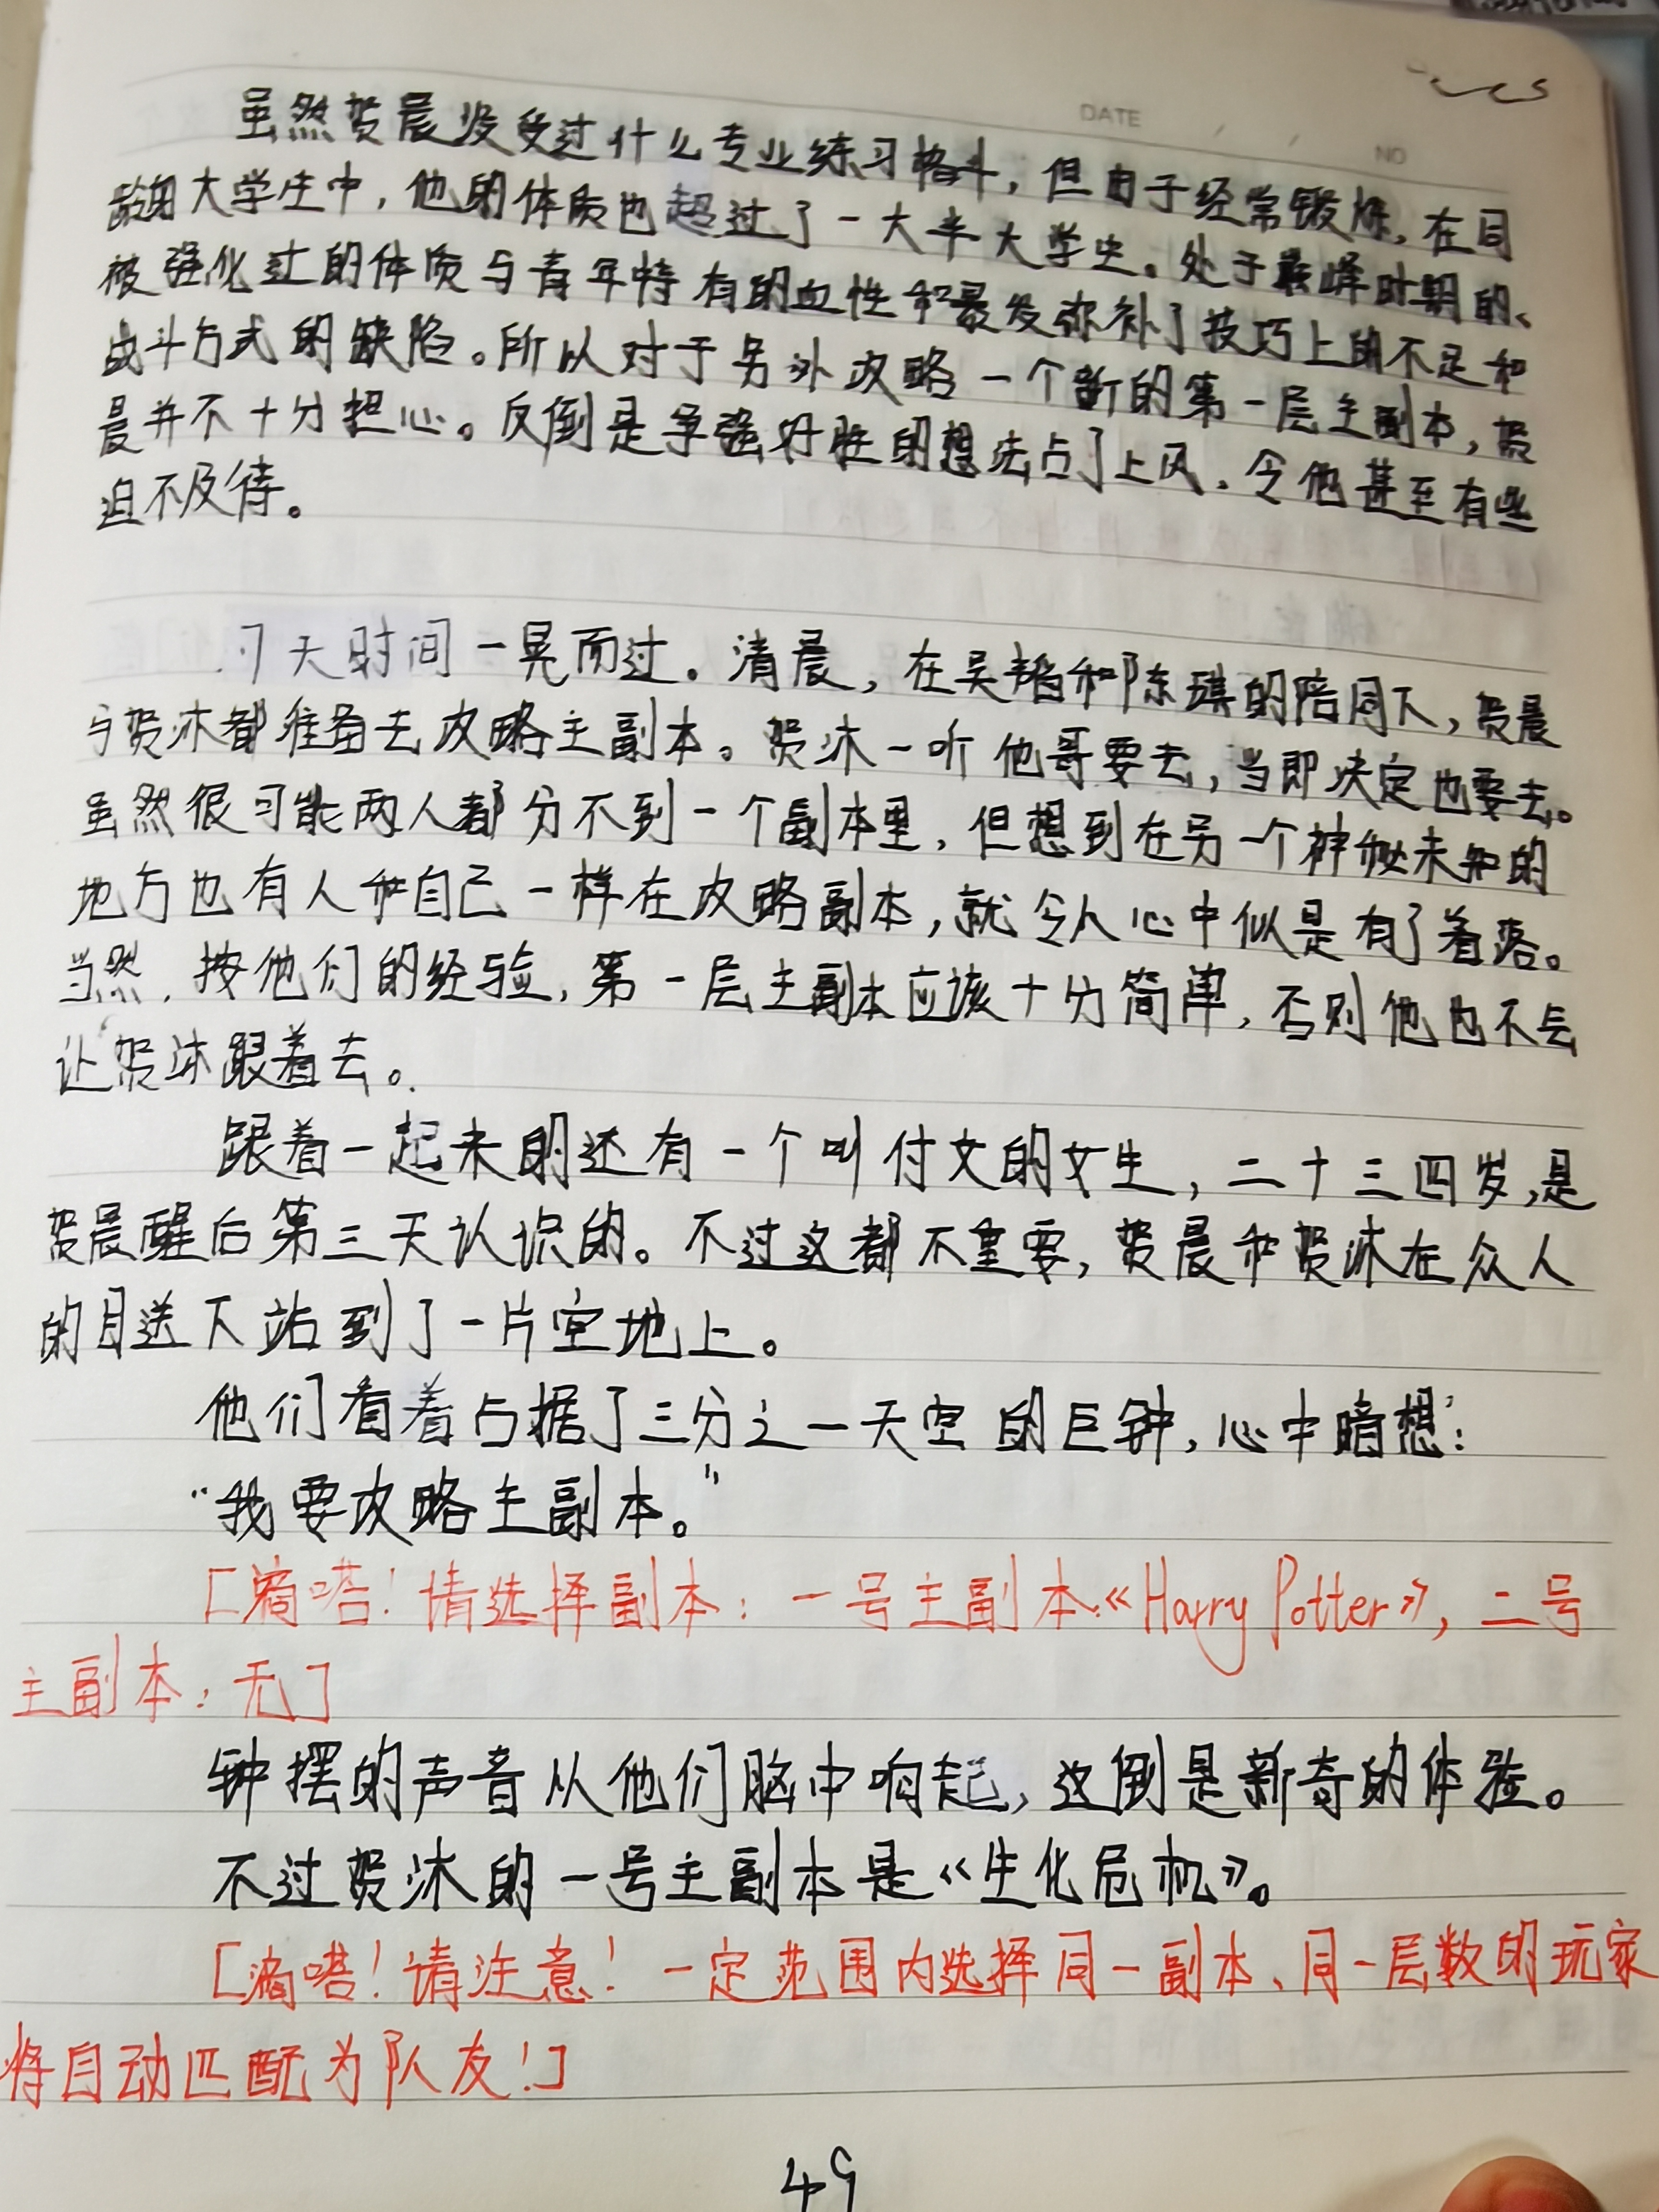 DATE / / NO
虽然贺晨没受过什么专业练习格斗，但由于经常锻炼，在同
龄的大学生中，他的体质也超过了一大半大学生。处于巅峰时期的、
被强化过的体质与青年特有的血性和暴发弥补了技巧上的不足和
战斗方式的缺陷。所以对于另外攻略一个新的第一层主副本，贺
晨并不十分担心。反倒是争强好胜的想法占了上风，令他甚至有些
迫不及待。
天时间一晃而过。清晨，在吴韬和陈琪的陪同下，贺晨
与贺沐都准备去攻略主副本。贺沐一听他哥要去，当即决定也要去。
虽然很可能两人都分不到一个副本里，但想到在另一个神秘未知的
地方也有人和自己一样在攻略副本，就令人心中似是有了着落。
当然，按他们的经验，第一层主副本应该十分简单，否则他也不会
让贺沐跟着去。
跟着一起来的还有一个叫付文的女生，二十三四岁，是
贺晨醒后第三天认识的。不过这都不重要，贺晨和贺沐在众人
的目送下站到了一片空地上。
他们看着占据了三分之一天空的巨钟，心中暗想：
“我要攻略主副本。”
[滴嗒！请选择副本：一号主副本：《Harry Potter》，二号
主副本：无]
钟摆的声音从他们脑中响起，这倒是新奇的体验。
不过贺沐的一号主副本是《生化危机》。
[滴嗒！请注意！一定范围内选择同一副本、同一层数的玩家
将自动匹配为队友！]
49